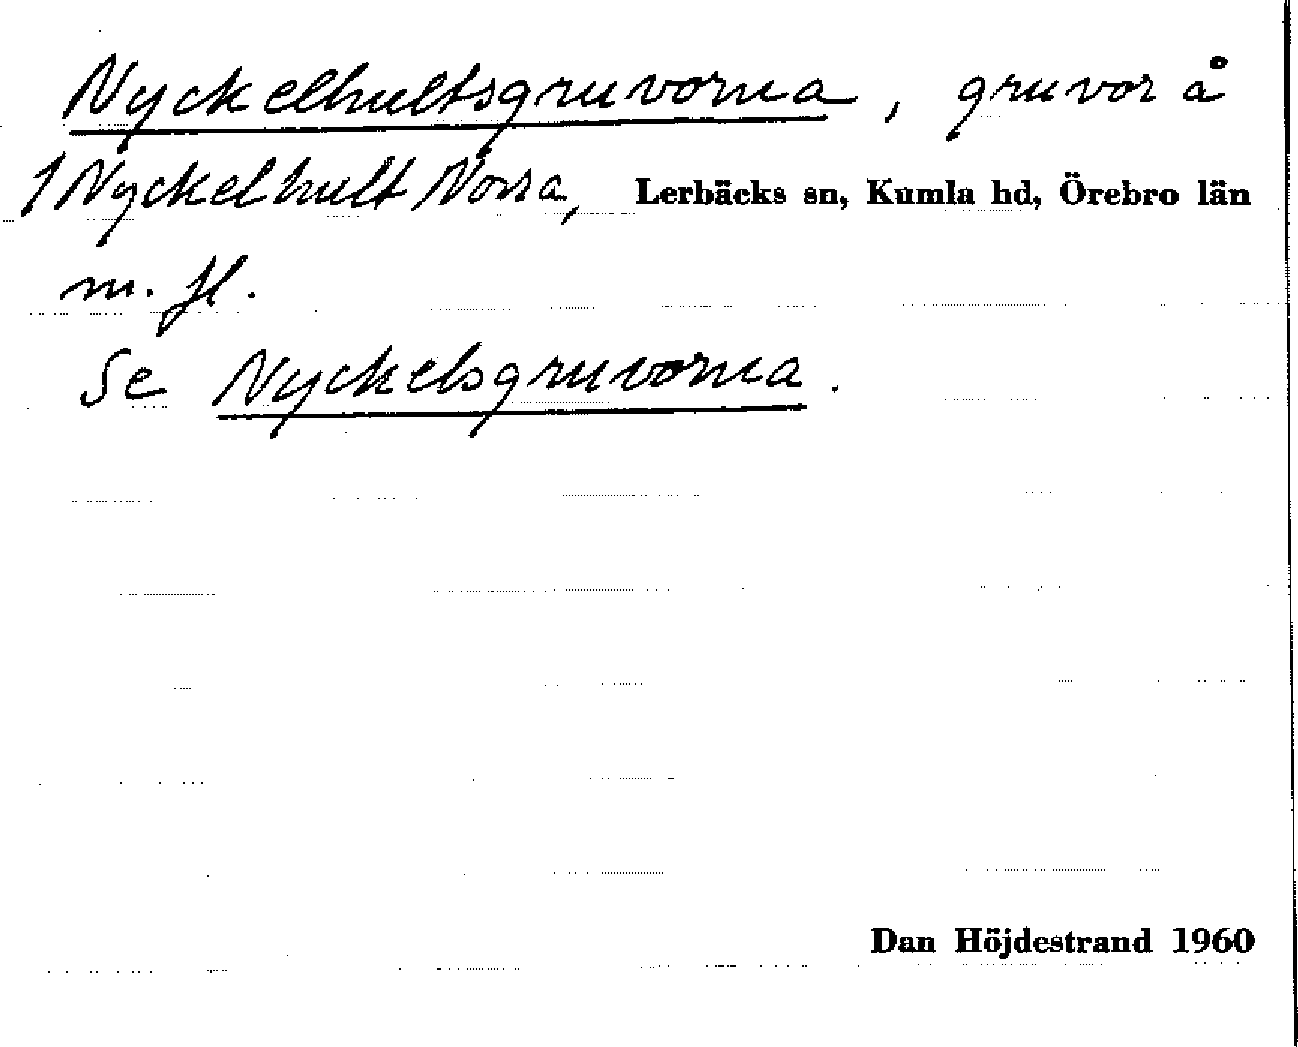 Nyckelhultsgruvorna, gruvor å
1 Nyckelhult Norra, Lerbäcks sn, Kumla hd, Örebro län
m. fl.
Se Nyckelsgruvorna.
Dan Höjdestrand 1960